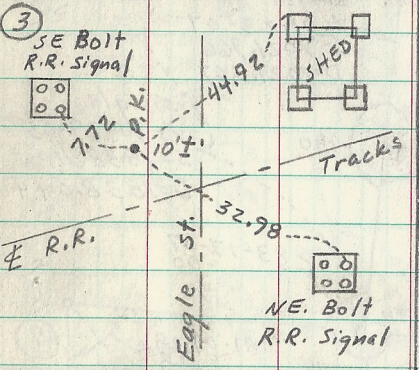 3
SE Bolt
R.R. Signal
44.92
SHED
7.72
P.K.
10'±
Tracks
℄ R.R.
32.98
Eagle St.
NE. Bolt
R.R. Signal